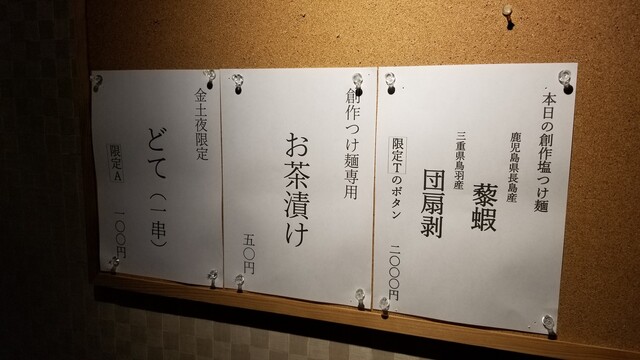 本日の創作塩つけ麺
鹿児島県長島産
藜蝦
三重県鳥羽産
団扇剥
限定Tのボタン
二〇〇〇円
創作つけ麺専用
お茶漬け
五〇円
金土夜限定
どて（一串）
限定A
一〇〇円